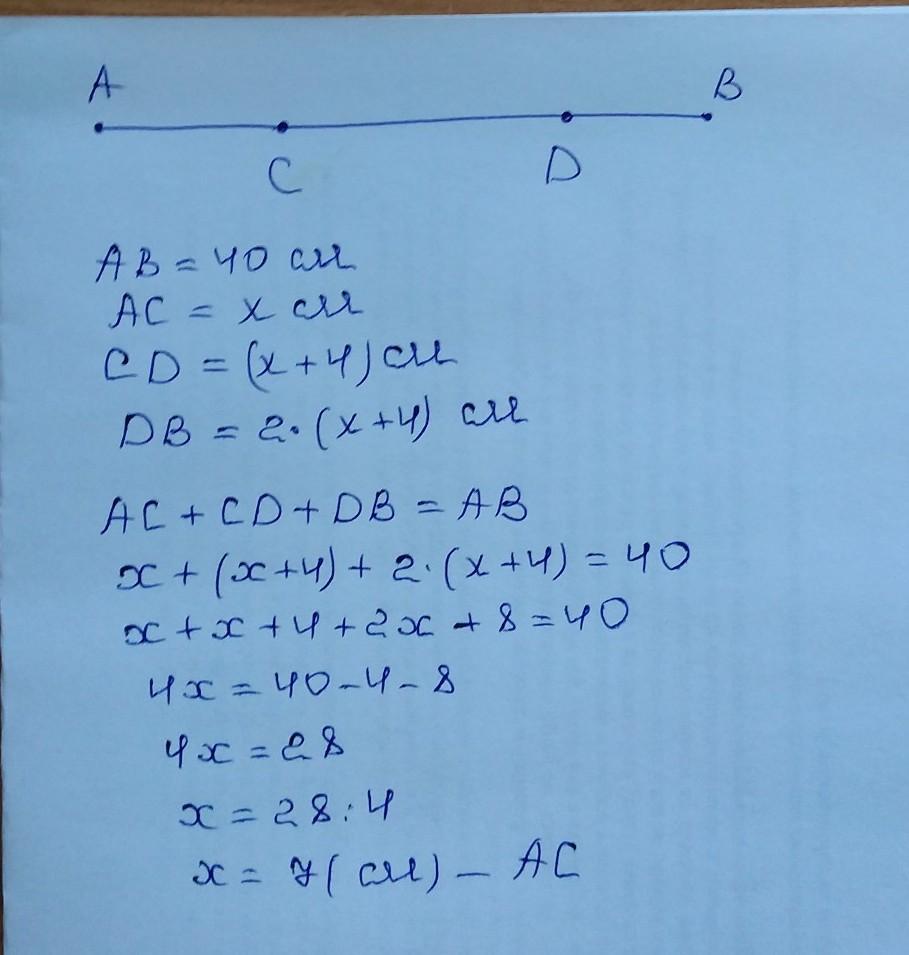 A B
C D
AB = 40 см
AC = x см
CD = (x+4) см
DB = 2·(x+4) см
AC + CD + DB = AB
x + (x+4) + 2·(x+4) = 40
x + x + 4 + 2x + 8 = 40
4x = 40-4-8
4x = 28
x = 28:4
x = 7(см) – AC